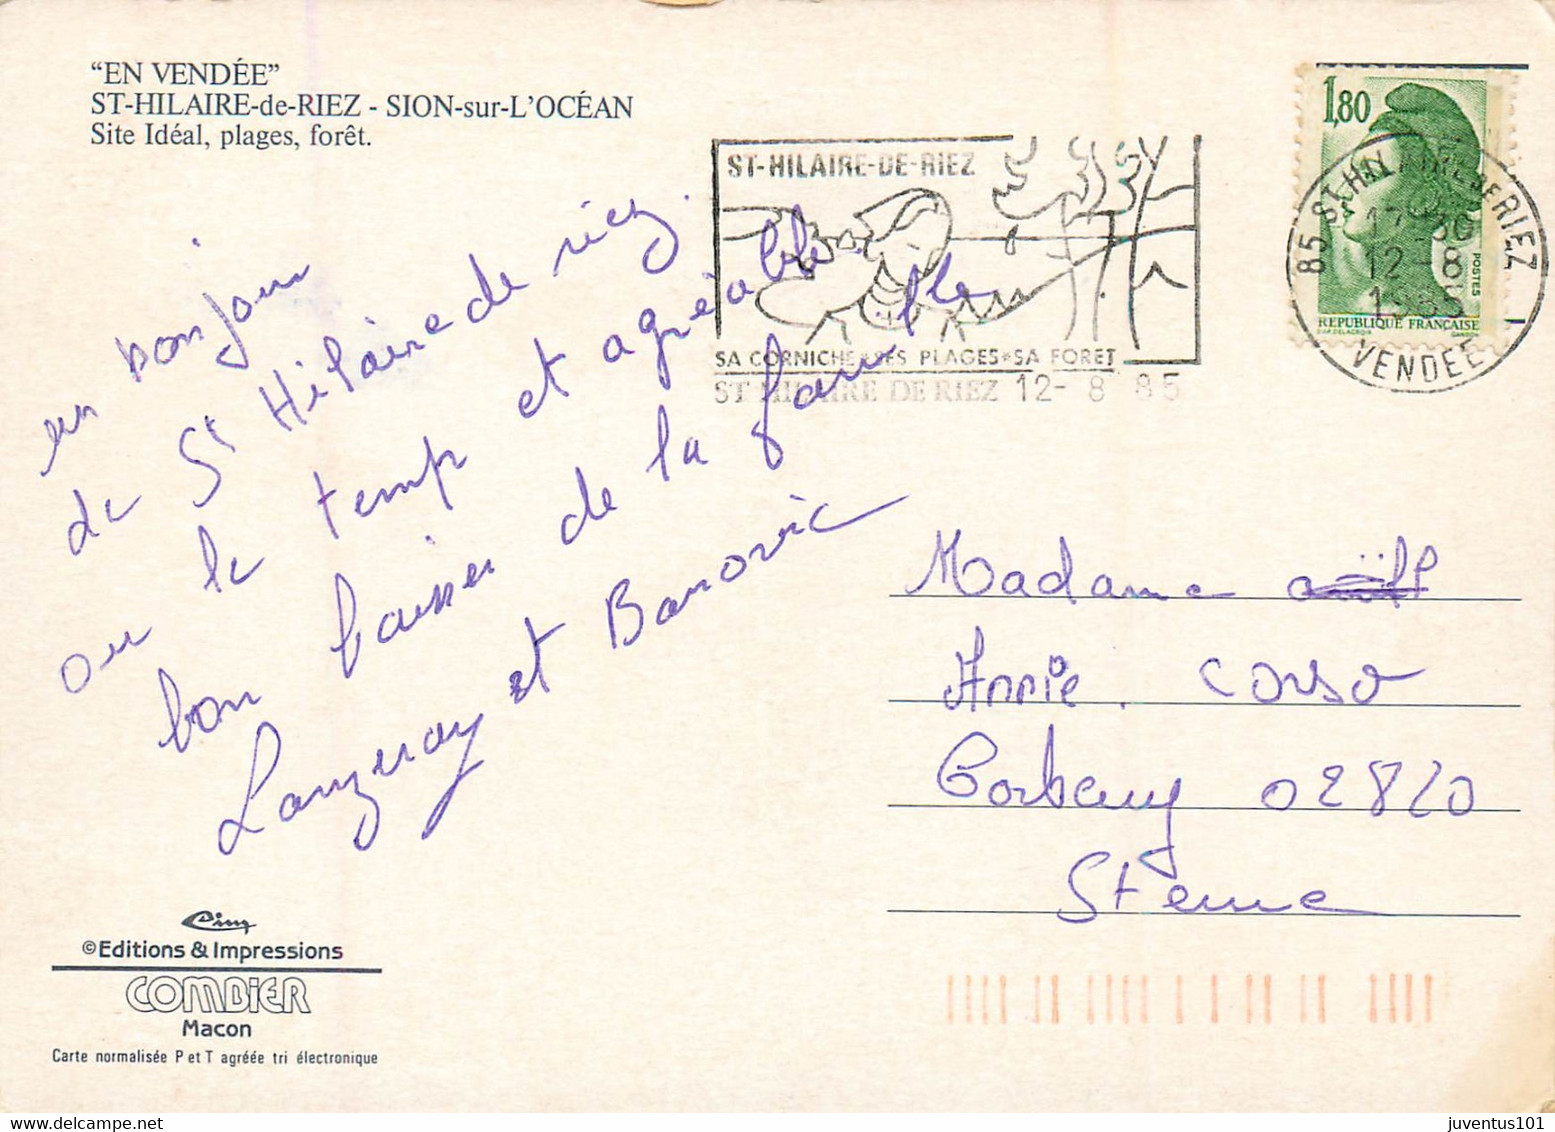 “EN VENDÉE”
ST-HILAIRE-de-RIEZ - SION-sur-L'OCÉAN
Site Idéal, plages, forêt.
ST-HILAIRE-DE-RIEZ
SA CORNICHE*SES PLAGES*SA FORET
ST HILAIRE DE RIEZ 12- 8 85
1,80
POSTES
REPUBLIQUE FRANÇAISE
85 ST-HILAIRE DE RIEZ
17-30
12-8
1985
VENDEE
en bonjour
de St Hilaire de riez.
ou le temp et agréable
bon baiser de la famille
et Banovic
Madame
Annie. Corso
Corbeny 02820
St erme
Cim
©Editions & Impressions
COMBIER
Macon
Carte normalisée P et T agréée tri électronique
juventus101